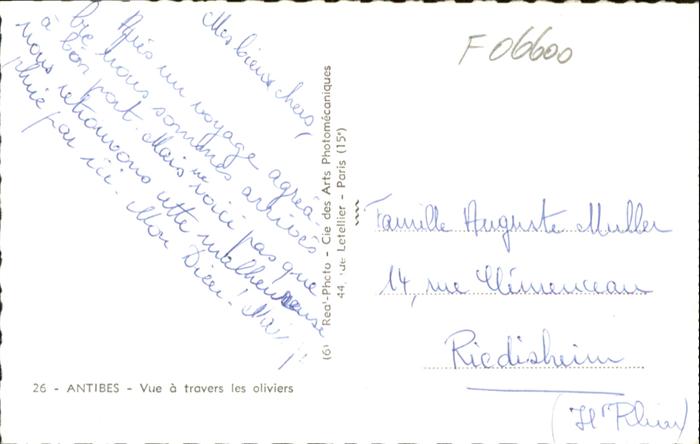 Mes bien chers,
Après un voyage agréa-
ble nous sommes arrivés
à bon port. Mais ne voici pas que
nous retrouvons cette malheureuse
pluie par ici. Mon Dieu! Mais je
F 06600
(6) Real-Photo - Cie des Arts Photomécaniques
44, rue Letellier - Paris (15e)
Famille Auguste Muller
14, rue Clémenceau
Riedisheim
(Ht Rhin)
26 - ANTIBES - Vue à travers les oliviers